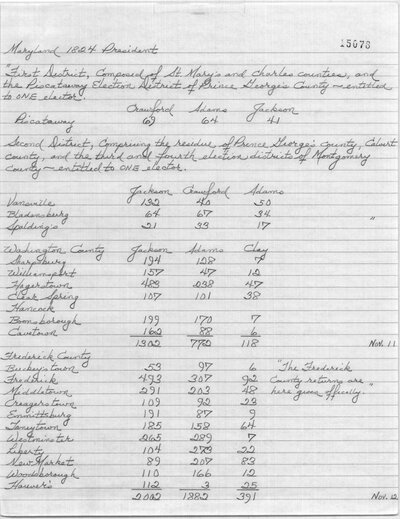 15678
Maryland 1824 President
"First District, Composed of St. Mary's and Charles counties, and
the Piscataway Election District of Prince George's County—entitled
to ONE elector.
Crawford Adams Jackson
Piscataway 69 64 41
Second District, Comprising the residue of Prince George's county, Calvert
county, and the third and fourth election districts of Montgomery
county—entitled to ONE elector.
Jackson Crawford Adams
Vansville 132 40 50
Bladensburg 64 67 34
Spalding's 21 33 17 "
Washington County Jackson Adams Clay
Sharpsburg 194 128 7
Williamsport 157 47 12
Hagerstown 483 238 47
Clear Spring 107 101 38
Hancock
Boonsborough 199 170 7
Cavetown 162 88 6
1302 772 118 Nov. 11
Frederick County
Buckeystown 53 97 6 "The Frederick
Frederick 493 307 92 County returns are
Middletown 291 203 48 here given officially."
Creagerstown 109 92 23
Emmittsburg 191 87 9
Taneytown 185 158 64
Westminster 265 289 7
Liberty 104 273 22
New Market 89 207 83
Woodsborough 110 166 12
Hauver's 112 3 25
2002 1882 391 Nov. 12